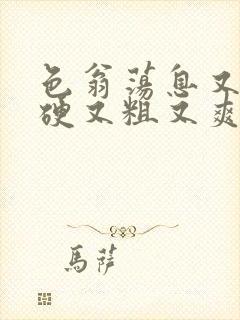 色翁荡息又
硬又粗又爽
馬萨